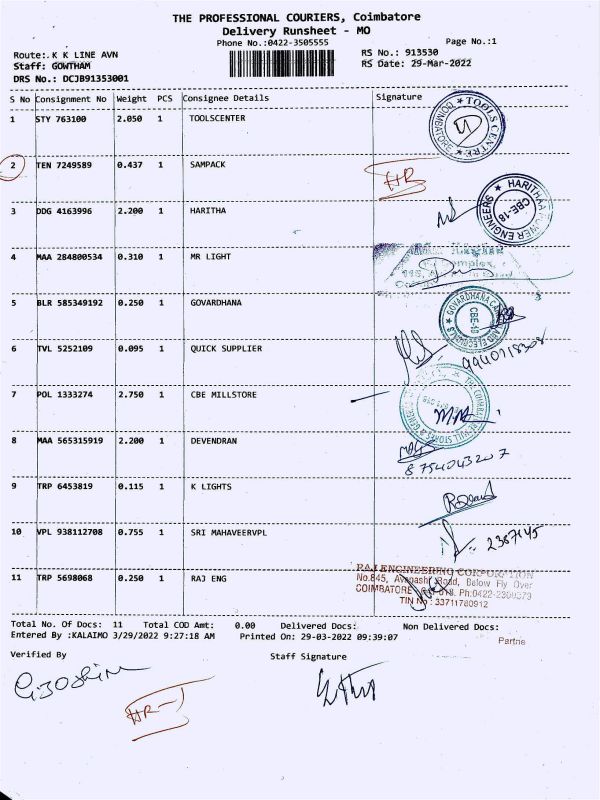 THE PROFESSIONAL COURIERS, Coimbatore
Delivery Runsheet - MO
Phone No.:0422-3505555
Page No.:1
Route:. K K LINE AVN
RS No.: 913530
Staff: GOWTHAM
RS Date: 29-Mar-2022
DRS No.: DCJB91353001
S No Consignment No Weight PCS Consignee Details Signature
1 STY 763100 2.050 1 TOOLSCENTER
TOOLS CENTRE
COIMBATORE
2 TEN 7249589 0.437 1 SAMPACK
HR
3 DDG 4163996 2.200 1 HARITHA
HARITHAA POWER ENGINEERS
CBE-18
4 MAA 284800534 0.310 1 MR LIGHT
5 BLR 585349192 0.250 1 GOVARDHANA
GOVARDHANA
6 TVL 5252109 0.095 1 QUICK SUPPLIER
7 POL 1333274 2.750 1 CBE MILLSTORE
8 MAA 565315919 2.200 1 DEVENDRAN
8754043207
9 TRP 6453819 0.115 1 K LIGHTS
10 VPL 938112708 0.755 1 SRI MAHAVEERVPL
11 TRP 5698068 0.250 1 RAJ ENG
RAJ ENGINEERING CORPORATION
No.845, Avinashi Road, Below Fly Over
COIMBATORE
TIN No : 33711780912
Total No. Of Docs: 11 Total COD Amt: 0.00 Delivered Docs: Non Delivered Docs:
Entered By :KALAIMO 3/29/2022 9:27:18 AM Printed On: 29-03-2022 09:39:07
Partne
Verified By Staff Signature
HR